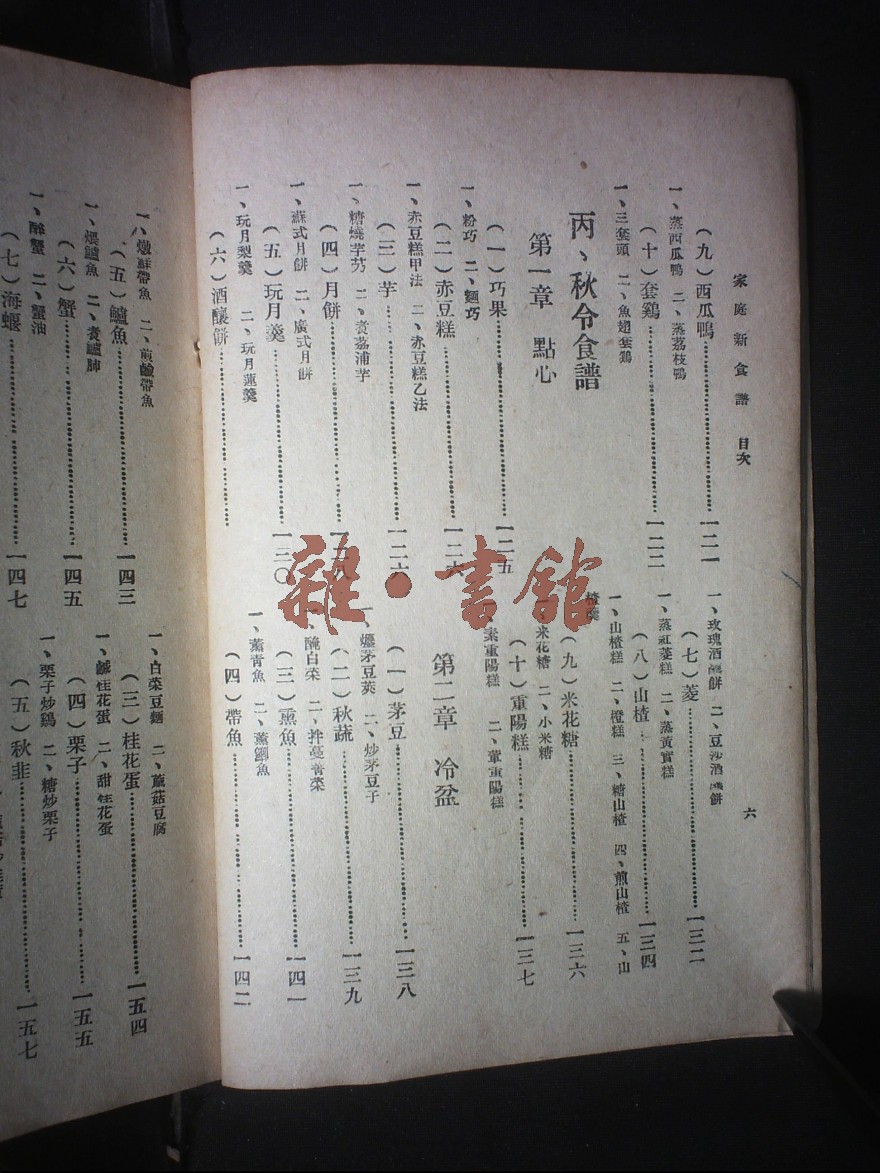 家庭新食譜 目次 六
（九）西瓜鴨……一二一
一、蒸西瓜鴨 二、蒸荔枝鴨
（十）套鷄……一二二
一、三套頭 二、魚翅套鷄
丙、秋令食譜
第一章 點心
（一）巧果……一二五
一、粉巧 二、麵巧
（二）赤豆糕……一二六
一、赤豆糕甲法 二、赤豆糕乙法
（三）芋……一二六
一、糖燒芋艿 二、煑荔浦芋
（四）月餅……一二八
一、蘇式月餅 二、廣式月餅
（五）玩月羹……一三〇
一、玩月梨羹 二、玩月蓮羹
（六）酒釀餅……
一、玫瑰酒釀餅 二、豆沙酒釀餅
（七）菱……一三二
一、蒸紅菱糕 二、蒸黃實糕
（八）山楂……一三四
一、山楂糕 二、橙糕 三、糖山楂 四、煎山楂 五、山
楂羹
（九）米花糖……一三六
米花糖 二、小米糖
（十）重陽糕……一三七
素重陽糕 二、葷重陽糕
第二章 冷盆
（一）茅豆……一三八
一、爊茅豆莢 二、炒茅豆子
（二）秋蔬……一三九
醃白菜 二、拌蔓菁菜
（三）熏魚……一四一
一、薰青魚 二、薰鯽魚
（四）帶魚……一四二
一、燉鮮帶魚 二、煎鹹帶魚
（五）鱸魚……一四三
一、煨鱸魚 二、煑鱸肺
（六）蟹……一四五
一、醉蟹 二、蟹油
（七）海蝘……一四七
一、白菜豆麵 二、蘑菇豆腐
（三）桂花蛋……一五四
一、鹹桂花蛋 二、甜桂花蛋
（四）栗子……一五五
一、栗子炒鷄 二、糖炒栗子
（五）秋韭……一五七
雜·書館